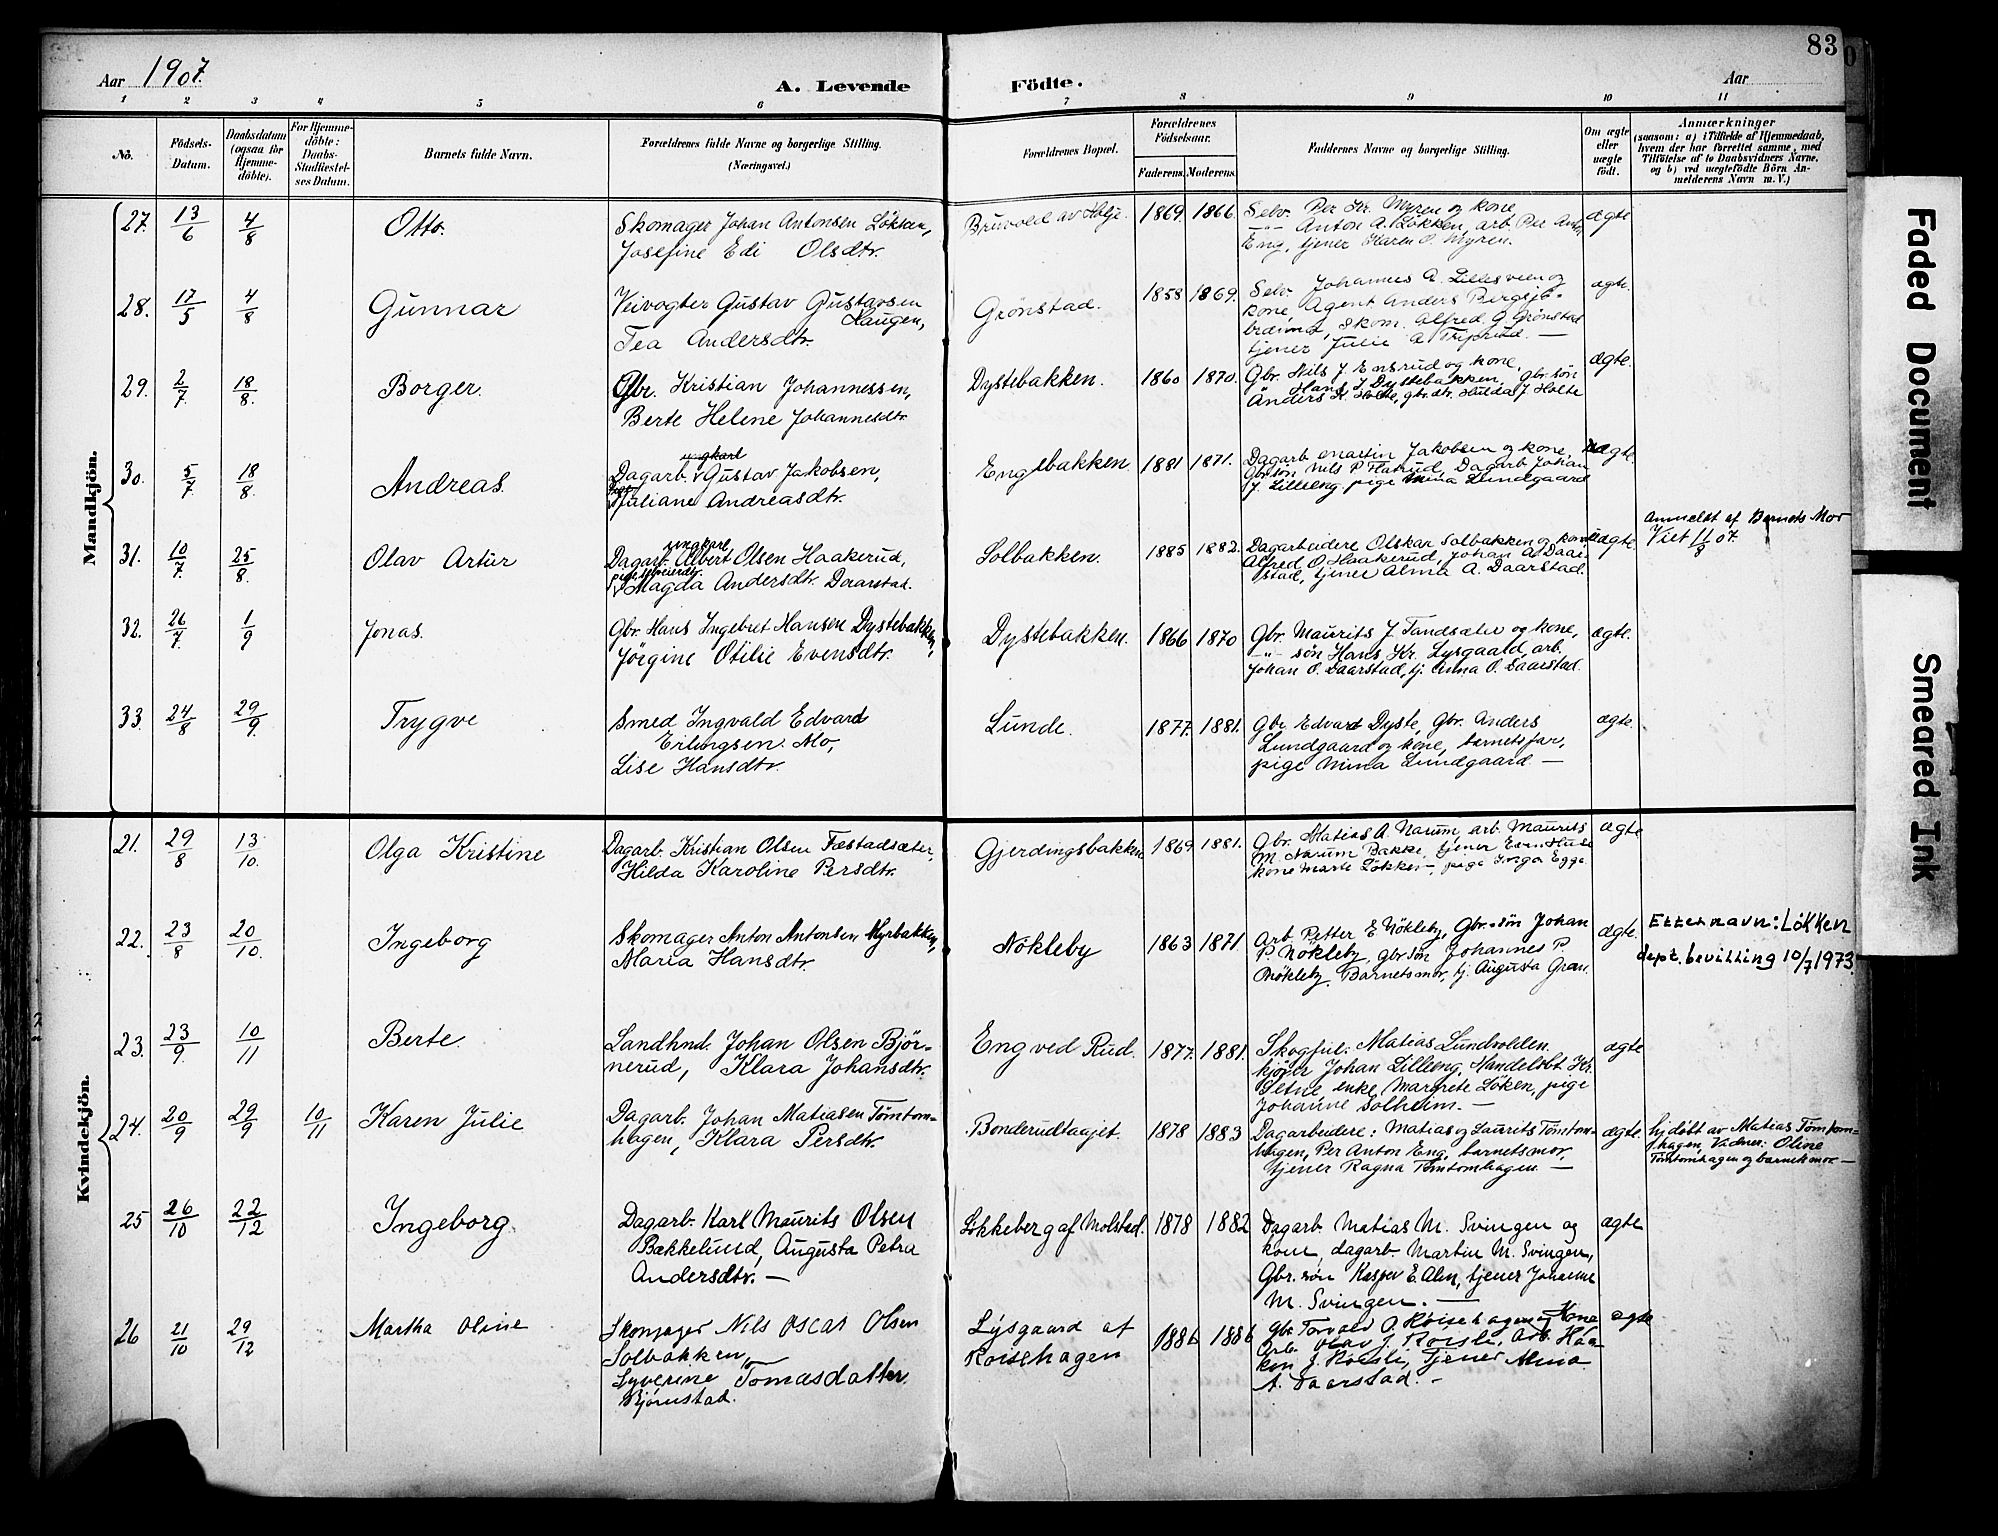 83
Aar 1907.
A. Levende Födte.
Aar
1 2 3 4 5 6 7 8 9 10 11
No.
Födsels-
Datum.
Daabsdatum
(ogsaa for
Hjemme-
döbte).
For Hjemme-
döbte:
Daabs-
Stadfæstel-
ses Datum.
Barnets fulde Navn.
Forældrenes fulde Navne og borgerlige Stilling.
(Næringsvei.)
Forældrenes Bopæl.
Forældrenes
Födselsaar.
Faderens. Moderens.
Faddernes Navne og borgerlige Stilling.
Om ægte
eller
uægte
födt.
Anmærkninger
(saasom: a) i Tilfælde af Hjemmedaab,
hvem der har forrettet samme, med
Tilföielse af to Daabsvidners Navne,
og b) ved uægtefödte Börn An-
melderens Navn m. V.)
Mandkjön.
27. 13/6 4/8 Otto.
Skomager Johan Antonsen Lökken,
Josefine Edi Olsdtr.
1869. 1866.
Selv. Per Kr. Myren og kone,
-"- Anton A. Lökken, arb. Per Anton
Eng, tjener Karen O. Myren.
ægte
28. 17/5 4/8 Gunnar
Veivogter Gustav Gustavsen
Haugen,
Tea Andersdtr.
Grönstad. 1858 1869.
Selv. Johannes A. Lillesveen og
kone, Agent Anders Bergsjö-
brænna, Skom. Alfred G. Grönstad
tjener Julie A.
ægte.
29. 2/7 18/8. Borger.
Gbr. Kristian Johannessen,
Berte Helene Johannesdtr.
Dystebakken. 1860 1870.
Gbr. Nils J. Ensrud og kone,
Hans J. Dystebakken, gbr. sön
Anders K. Holte, gbr. dtr. Hulda J. Holte
ægte.
30. 5/7 18/8. Andreas.
ungkarl
Dagarb. Gustav Jakobsen,
Juliane Andreasdtr.
Englebakken. 1881 1871.
Dagarb. Martin Jakobsen og kone,
Gbr. sön Nils P. Flatrud, Dagarb. Johan
J. Lilleeng, pige Mina Lundgaard
uægte.
31. 10/7 25/8. Olav Artur
ungkarl
Dagarb. Albert Olsen Haakerud,
Magda Andersdtr. Daarstad.
Solbakken. 1885 1882.
Dagarbeidere Olskar Solbakken og kone
Alfred O. Haakerud, Johan A. Daar-
stad, tjener Alma A. Daarstad.
uægte.
Anmeldt af Barnets Mor
Viet 11/8 07.
32. 26/7. 1/9 Jonas.
Gbr. Hans Ingebret Hansen Dystebakken,
Jörgine Otilie Evensdtr.
Dystebakken. 1866 1870
Gbr. Maurits J. Tandsæter og kone,
-"- sön Hans Kr. Lysgaard, arb.
Johan O. Daarstad, tj. Anna O. Daarstad.
ægte.
33. 24/8 29/9. Trygve
Smed Ingvald Edvard
Erlingsen Mo,
Lise Hansdtr.
Lunde. 1877. 1881.
Gbr. Edvard Dyste, Gbr. Anders
Lundgaard og kone, barnets far,
pige Mina Lundgaard. —
ægte.
Kvindekjön.
21. 29/8 13/10. Olga Kristine
Dagarb. Kristian Olsen Fæstadsæter,
Hilda Karoline Persdtr.
Gjerdingsbakken 1869 1881.
Gbr. Matias A. Narum, arb. Maurits
M. Narum Bakke, tjener Even Huse
kone Marte Lökken, pige Inga Egge.
ægte
22. 23/8 20/10. Ingeborg
Skomager Anton Antonsen Myrbakken,
Maria Hansdtr.
Nökleby 1863 1871.
Arb. Petter E. Nökleby, Gbr. sön Johan
P. Nökleby, gbr. sön Johannes P.
Nökleby, Barnets mor, tj. Augusta Gran.
ægte.
Etternavn: Løkken
dept. bevilling 10/7 1973
23. 23/9. 10/11 Berte.
Landhnd. Johan Olsen Björ-
nerud, Klara Johansdtr.
Eng ved Rud. 1877. 1881.
Skogful. Matias Lundvolden.
kjörer Johan Lilleeng, Handelsbt. Kr.
Setne, enke Margrete Löken, pige
Johanne Solheim. —
ægte
24. 20/9 29/9 10/11 Karen Julie
Dagarb. Johan Matiasen Tömtom-
hagen, Klara Persdtr.
Bonderudtaajet. 1878 1883
Dagarbeidere: Matias og Laurits Tömtom-
hagen, Per Anton Eng, barnets mor,
tjener Ragna Tömtomhagen —
ægte.
hj.döbt av Matias Tömtom-
hagen, Vidner: Oline
Tömtomhagen og barnets mor —
25 26/10 22/12 Ingeborg.
Dagarb. Karl Maurits Olsen
Bækkelund, Augusta Petra
Andersdtr. —
Lökkeberg af Molstad. 1878 1882
Dagarb. Matias M. Svingen og
kone, dagarb. Martin M. Svingen,
Gbr. sön Kasper E. Alm, tjener Johanne
M. Svingen. —
ægte
26 21/10 29/12 Martha Oline
Skomager Nils Oscar Olsen
Solbakken,
Lyverine Tomasdatter
Bjørnstad.
Lysgaard af
Roisehagen 1886 1886
Gbr. Torvald A. Röisehagen og Kone
Arb. Olav J. Roisli, Arb. Haa-
kon J. Roisli, Tjener Alma
A. Daarstad. -
ægte
Faded Document
Smeared Ink